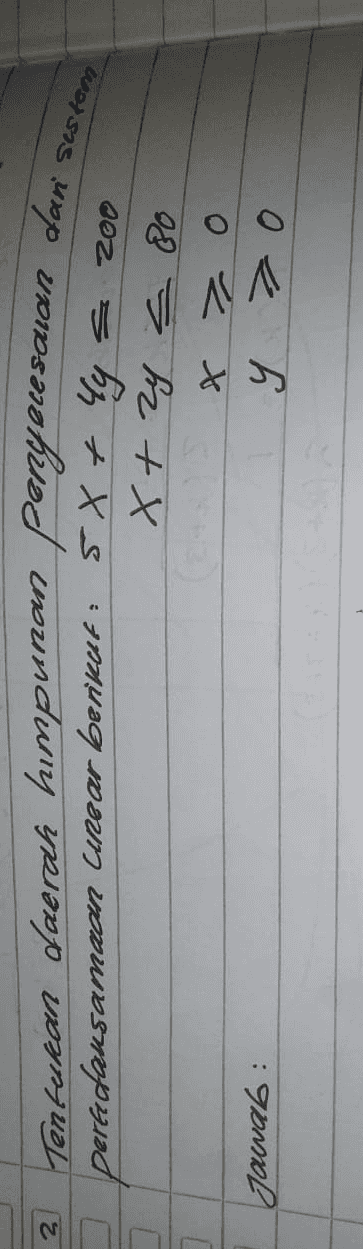 2. Tentukan daerah himpunan penyelesaian dari sistem
pertidaksamaan linear berikut: 5x + 4y ≤ 200
x + 2y ≤ 80
x ≥ 0
y ≥ 0
Jawab: